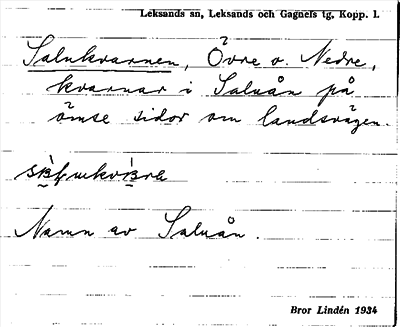 Leksands sn, Leksands och Gagnefs tg, Kopp. l.
Salukvarnen, Övre o. Nedre,
kvarnar i Saluån på
ömse sidor om landsvägen.
Namn av Saluån.
Bror Lindén 1934